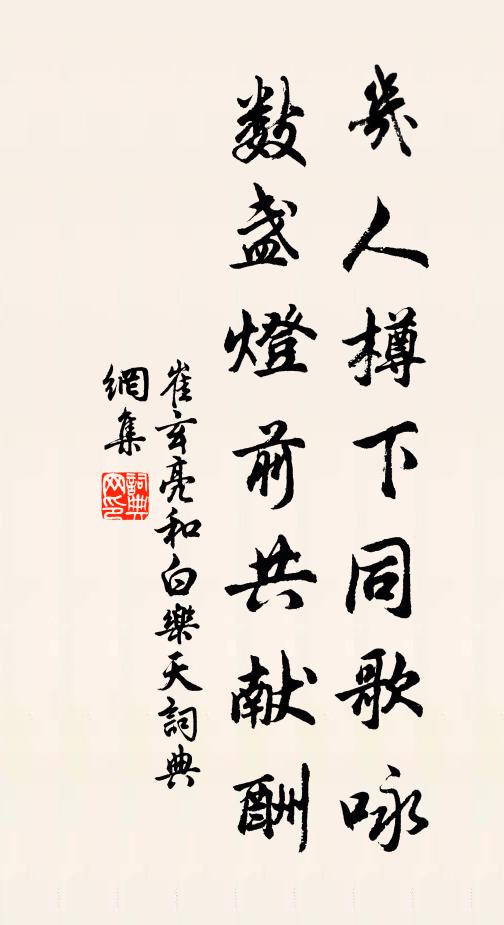 幾人樽下同歌咏
數盞燈前共献酬
崔玄亮和白樂天詞典
網集
詞典
网印